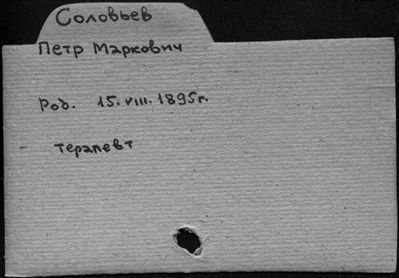 Соловьев
Петр Маркович
Род. 15. VIII. 1895г.
терапевт